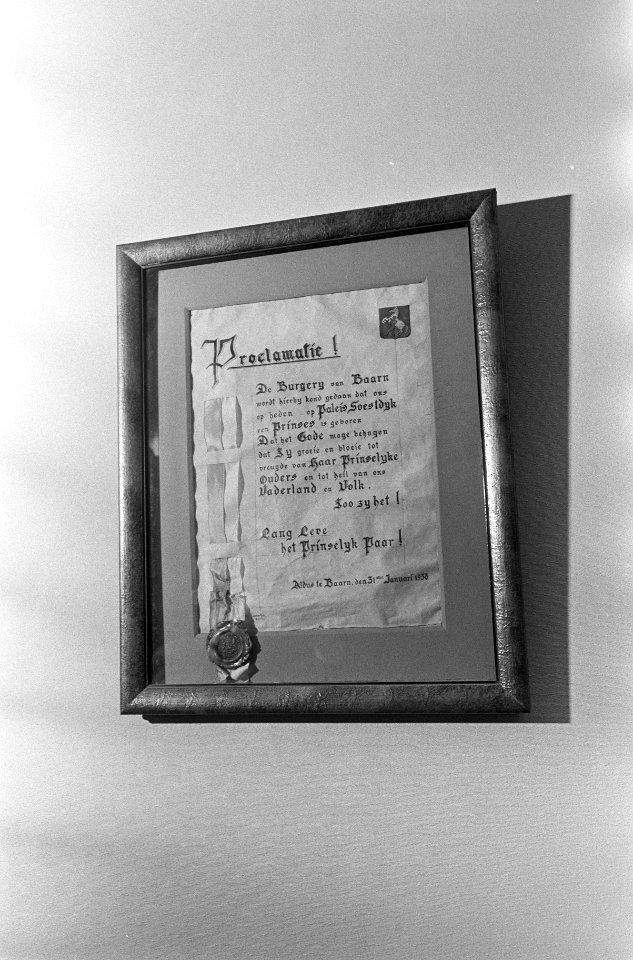 Proclamatie !
De Burgery van Baarn
wordt hierby kond gedaan dat ons
op heden op Paleis Soestdyk
een Prinses is geboren
Dat het Gode moge behagen
dat Zy groeie en bloeie tot
vreugde van Haar Prinselyke
Ouders en tot heil van ons
Vaderland en Volk.
Zoo zy het !
Lang Leve
het Prinselyk Paar !
Aldus te Baarn, den 31sten Januari 1938